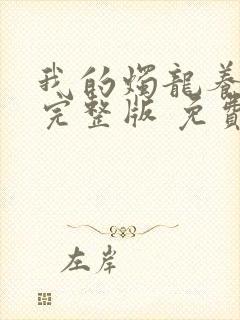 我的燭龍養
完整版 免費
左岸